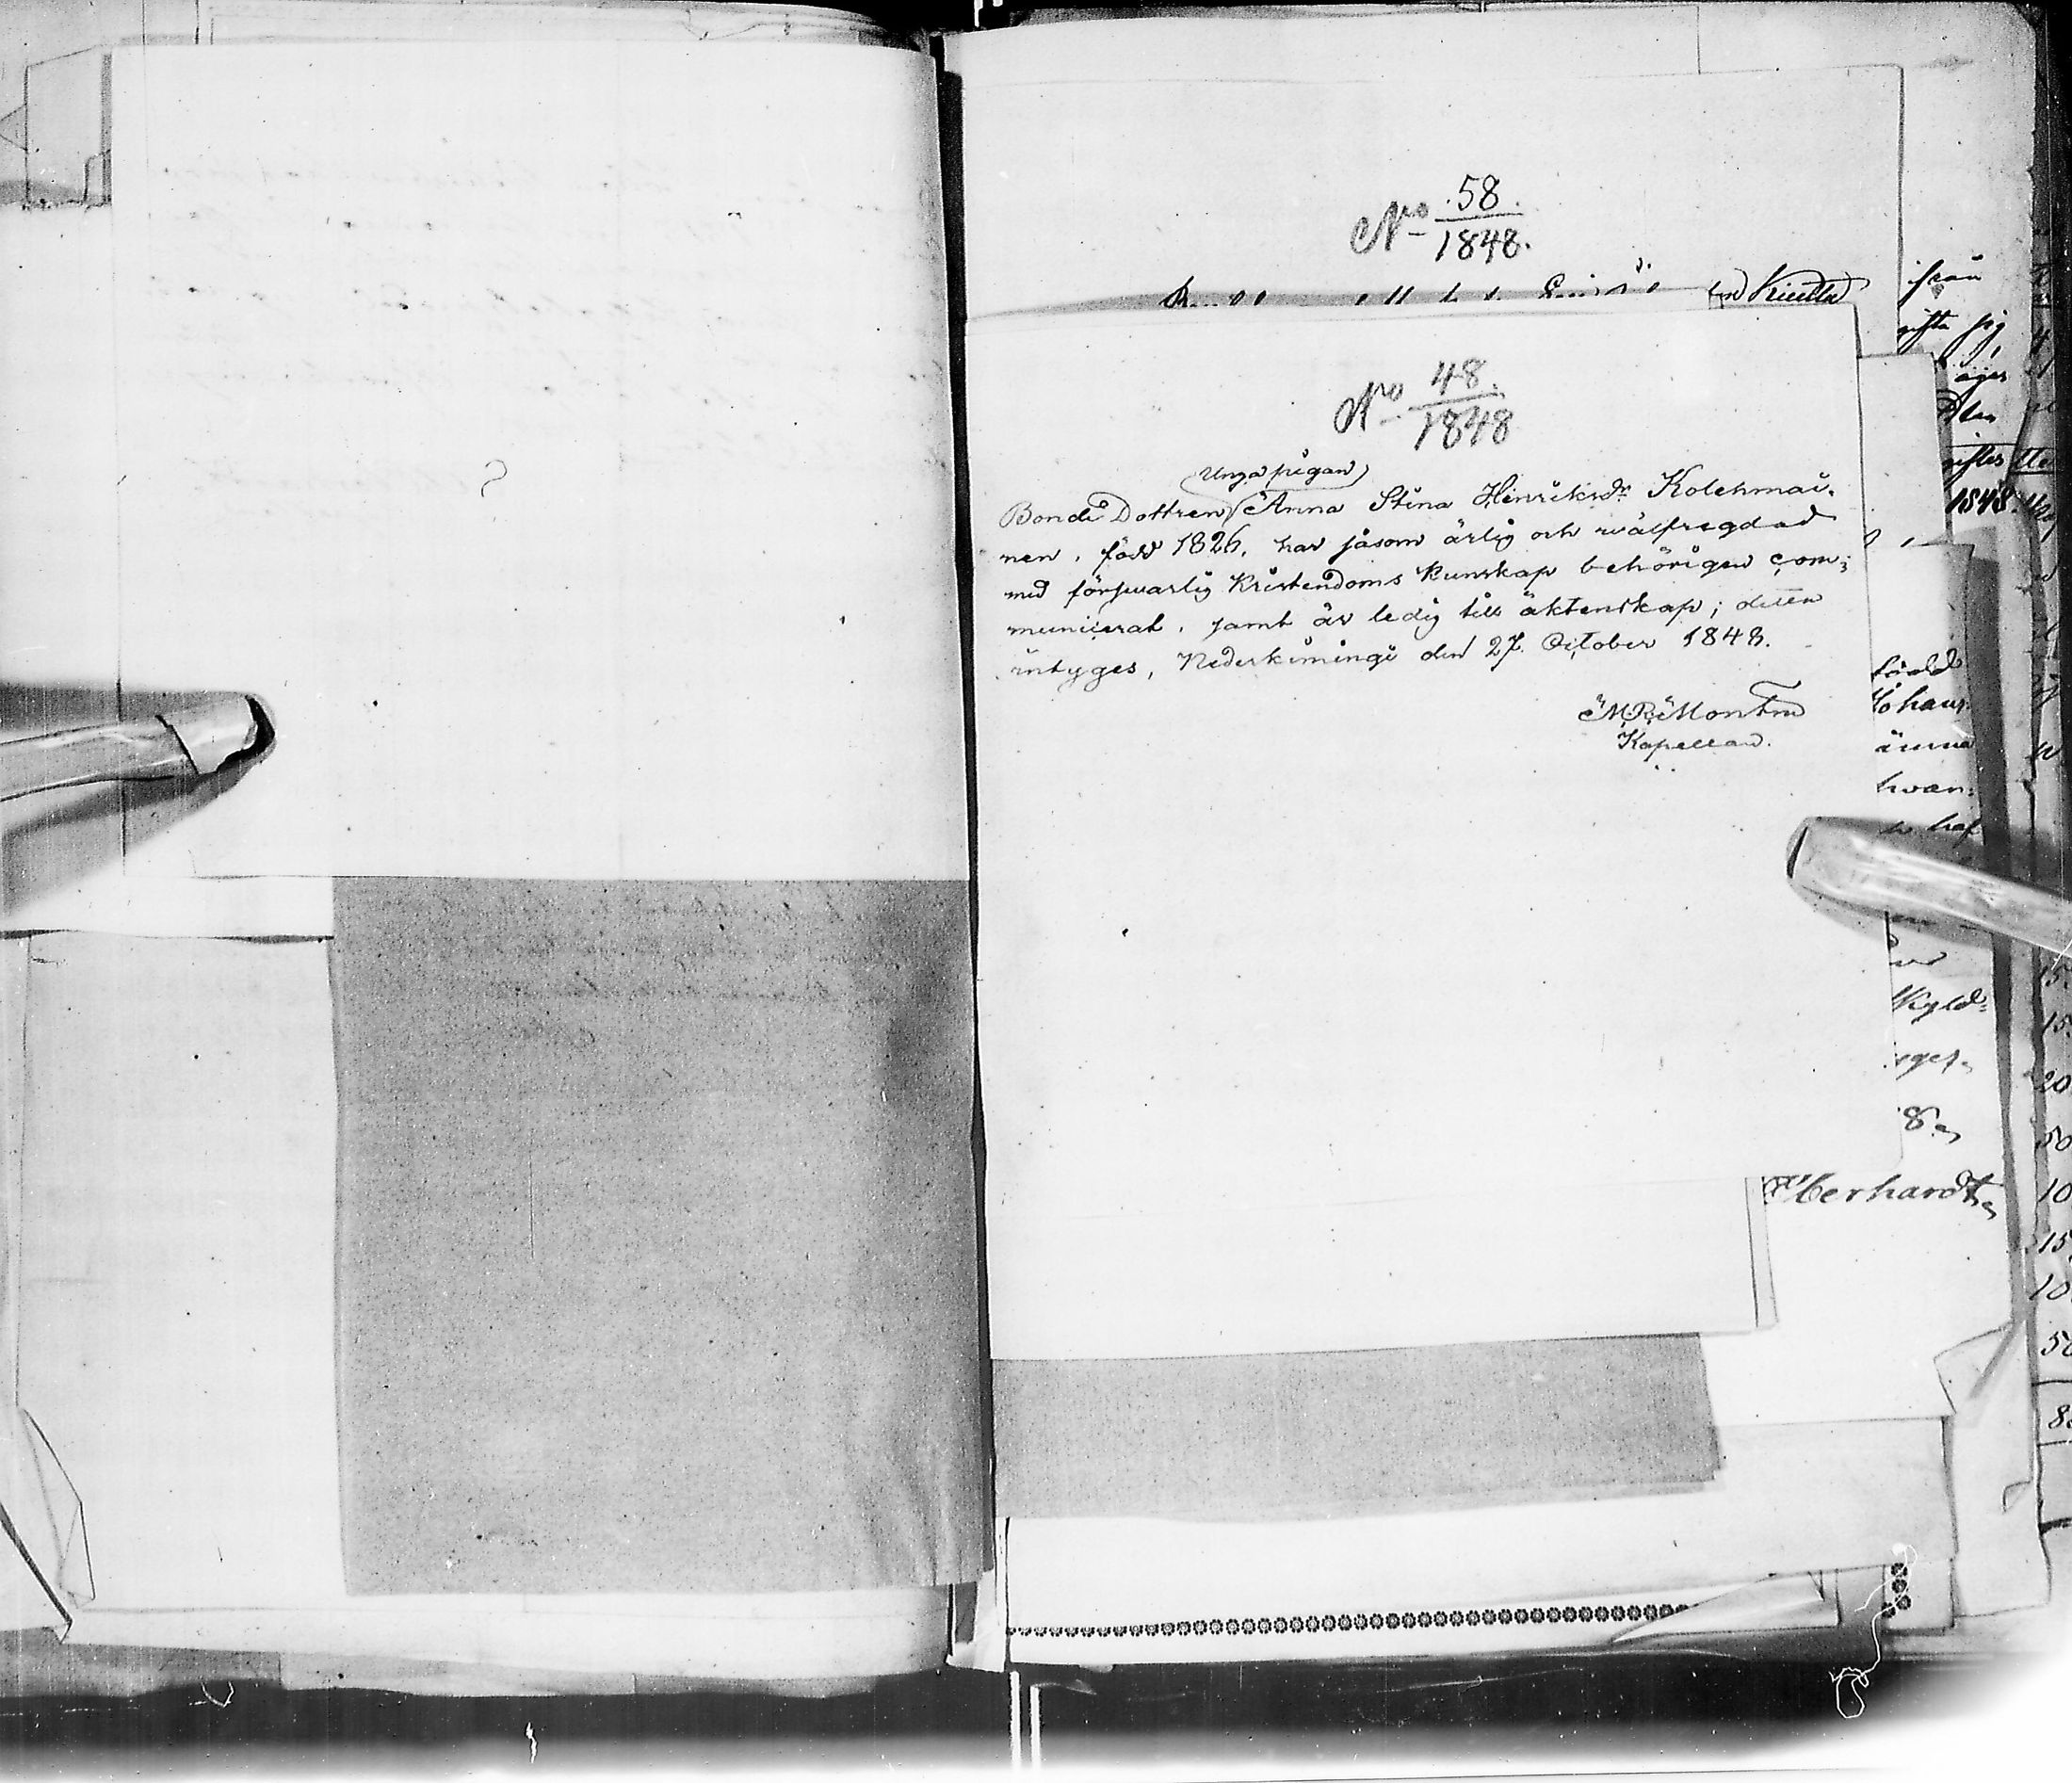 No 58.
1848.
No 48.
1848
Unga pigan
Bonde Dottren Anna Stina Hinriksdr Kolehmai-
nen, född 1826, har såsom ärlig och wälfregdad
med förswarlig Kristendoms kunskap behörigen com-
municerat, samt är ledig till äktenskap; detta
intyges, Nederkimingi den 27. October 1848.
Kapellan.
ifrån
gifta sig
äger
den
1848.
född
Johans
ämna
hvan:
haf
Skyld=
8.
Eberhardt
15.
15.
20
50
10
15
10
50
8